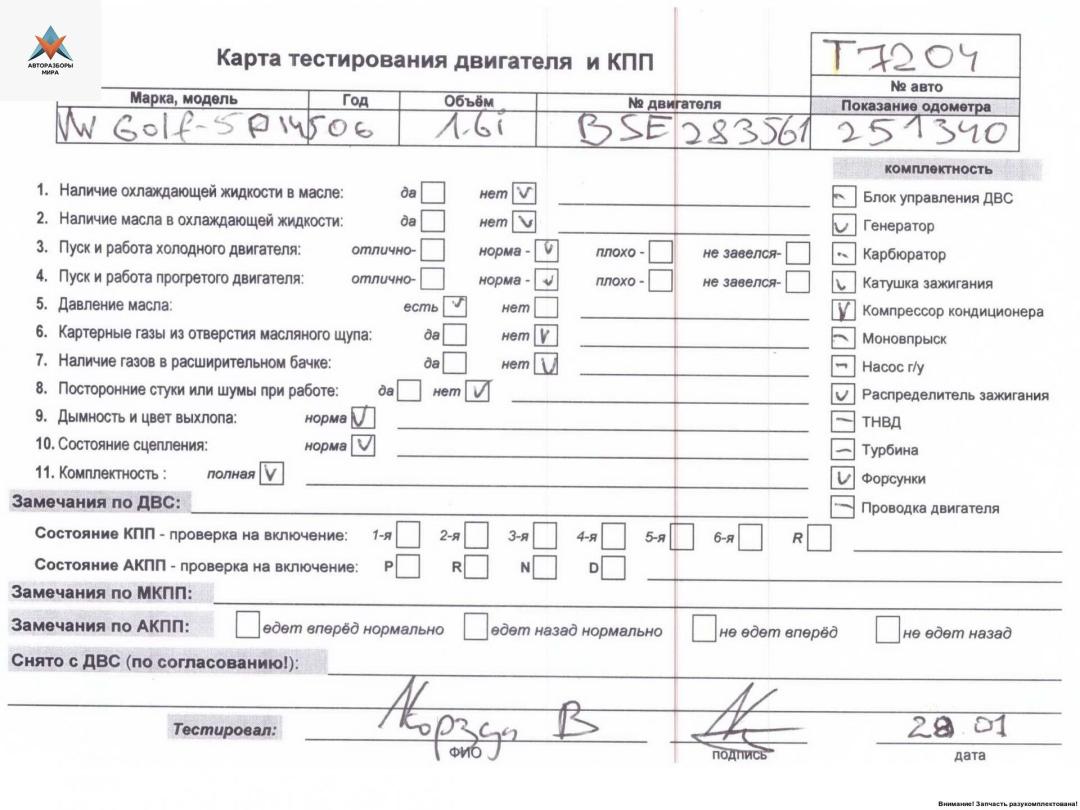 АВТОРАЗБОРЫ
МИРА
Карта тестирования двигателя и КПП
T7204
№ авто
Марка, модель Год Объём № двигателя Показание одометра
VW Golf-5 06 1.6i BSE 283561 251340
комплектность
1. Наличие охлаждающей жидкости в масле: да нет
Блок управления ДВС
2. Наличие масла в охлаждающей жидкости: да нет
Генератор
3. Пуск и работа холодного двигателя: отлично- норма - плохо - не завелся-
Карбюратор
4. Пуск и работа прогретого двигателя: отлично- норма - плохо - не завелся-
Катушка зажигания
5. Давление масла: есть нет
Компрессор кондиционера
6. Картерные газы из отверстия масляного щупа: да нет
Моновпрыск
7. Наличие газов в расширительном бачке: да нет
Насос г/у
8. Посторонние стуки или шумы при работе: да нет
Распределитель зажигания
9. Дымность и цвет выхлопа: норма
ТНВД
10. Состояние сцепления: норма
Турбина
11. Комплектность : полная
Форсунки
Замечания по ДВС:
Проводка двигателя
Состояние КПП - проверка на включение: 1-я 2-я 3-я 4-я 5-я 6-я R
Состояние АКПП - проверка на включение: P R N D
Замечания по МКПП:
Замечания по АКПП: едет вперёд нормально едет назад нормально не едет вперёд не едет назад
Снято с ДВС (по согласованию!):
Тестировал: В 28.01
ФИО подпись дата
Внимание! Запчасть разукомплектована!